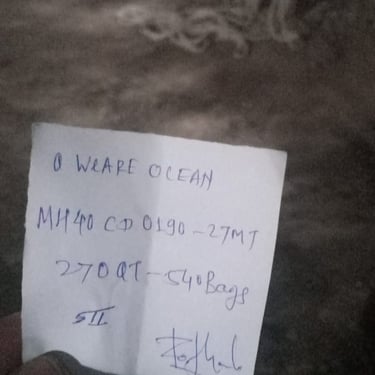 0 WEARE OCEAN
MH40 CD 0190 - 27MT
270 QT - 540 Bags